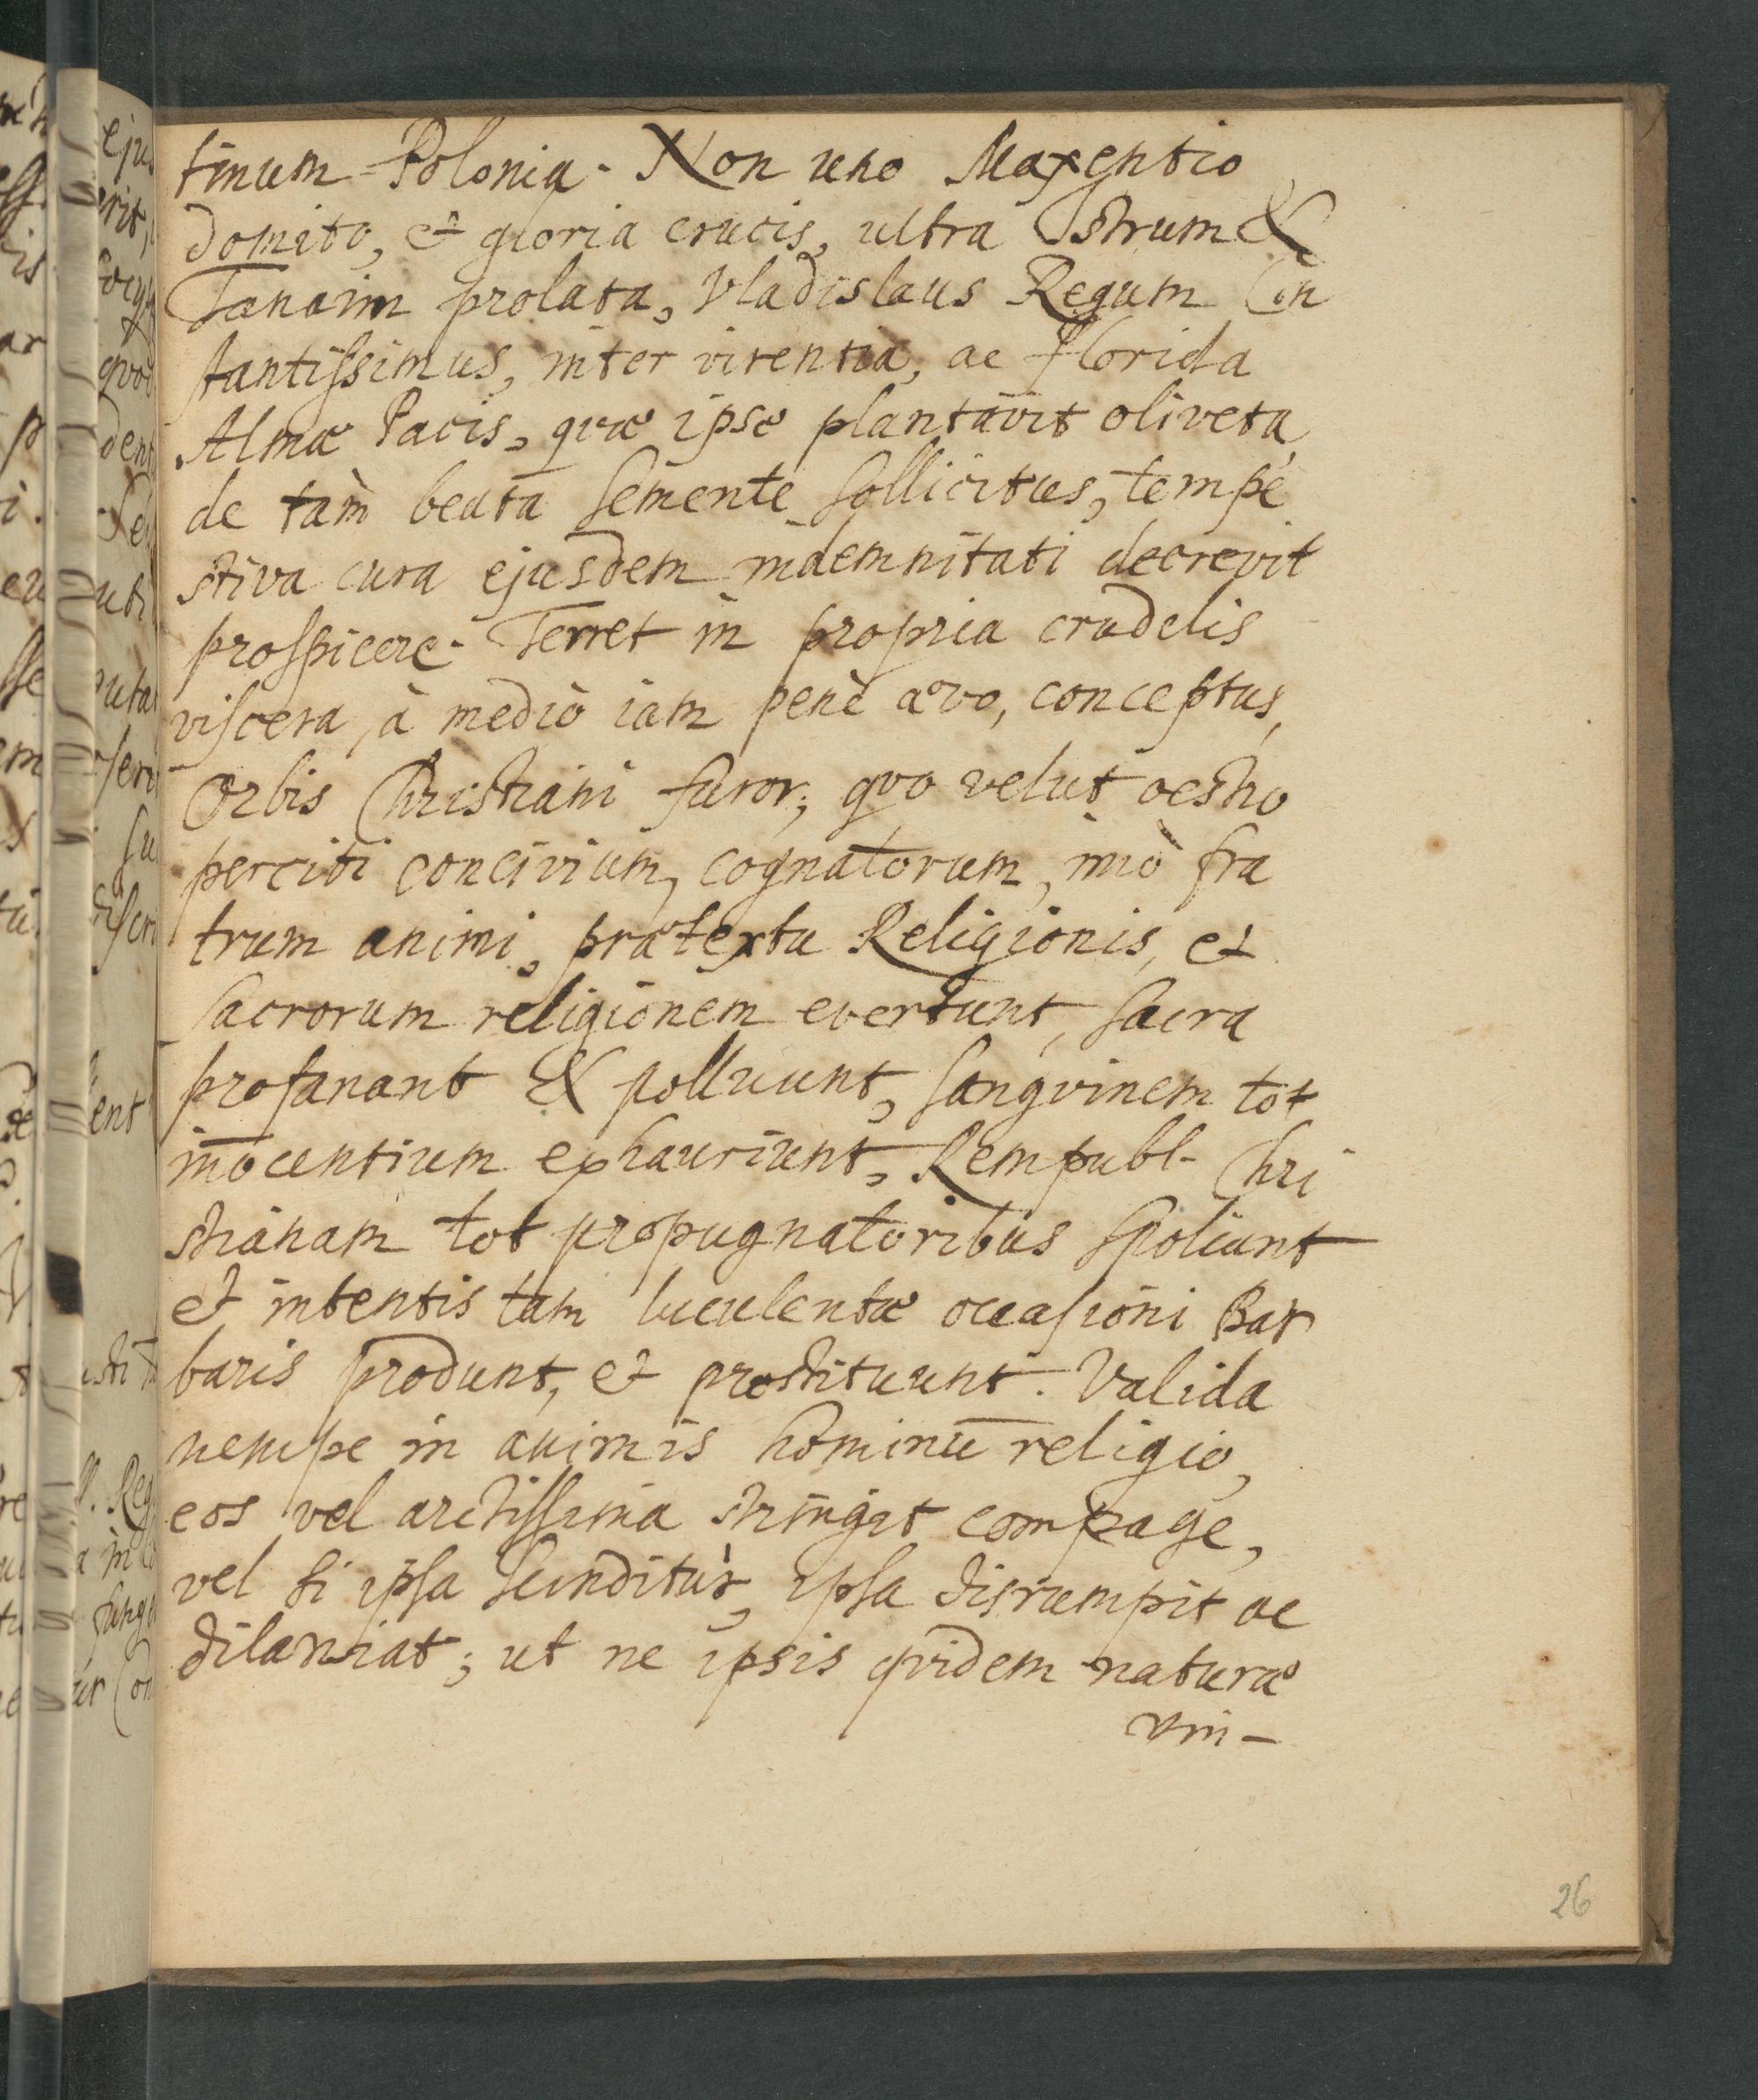 tinum Polonia. Non uno Maxentio
domito, et gloria crucis, ultra Istrum &
Tanaim prolata, Vladislaus Regum Con
stantissimus, inter virentia, ac florida
Almæ Pacis, qvæ ipse plantavit oliveta,
de tam̀ beata semente sollicitus, tempe
stiva cura ejusdem indemnitati decrevit
prospicere. Terret in propria crudelis
viscera, à mediò iam penè ævo, conceptus,
Orbis Christiani furor; qvo velut oestro
perciti concivium, cognatorum, imò fra
trum animi, prætextu Religionis, et
sacrorum religionem evertunt, sacra
profanant & polluunt, sangvinem tot
iñocentium exhauriunt, Rempubl. Chri
stianam tot propugnatoribus spoliant
et intentis tam luculentæ occasioni Bar
baris produnt, et prostituunt. Valida
nempe in animis hominū religio,
eos vel arctissima stringit compage,
vel si ipsa scinditur, ipsa disrumpit ac
dilaniat; ut ne ipsis qvidem naturæ
vin-
26